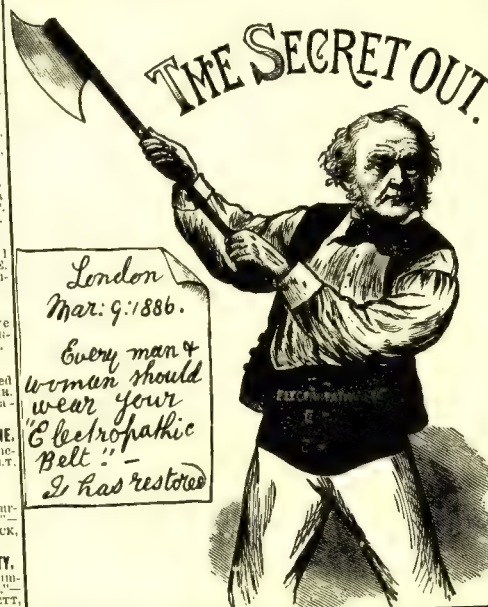 THE SECRET OUT.
London
Mar: 9: 1886.
Every man &
woman should
wear your
"Electropathic
Belt." —
It has restored